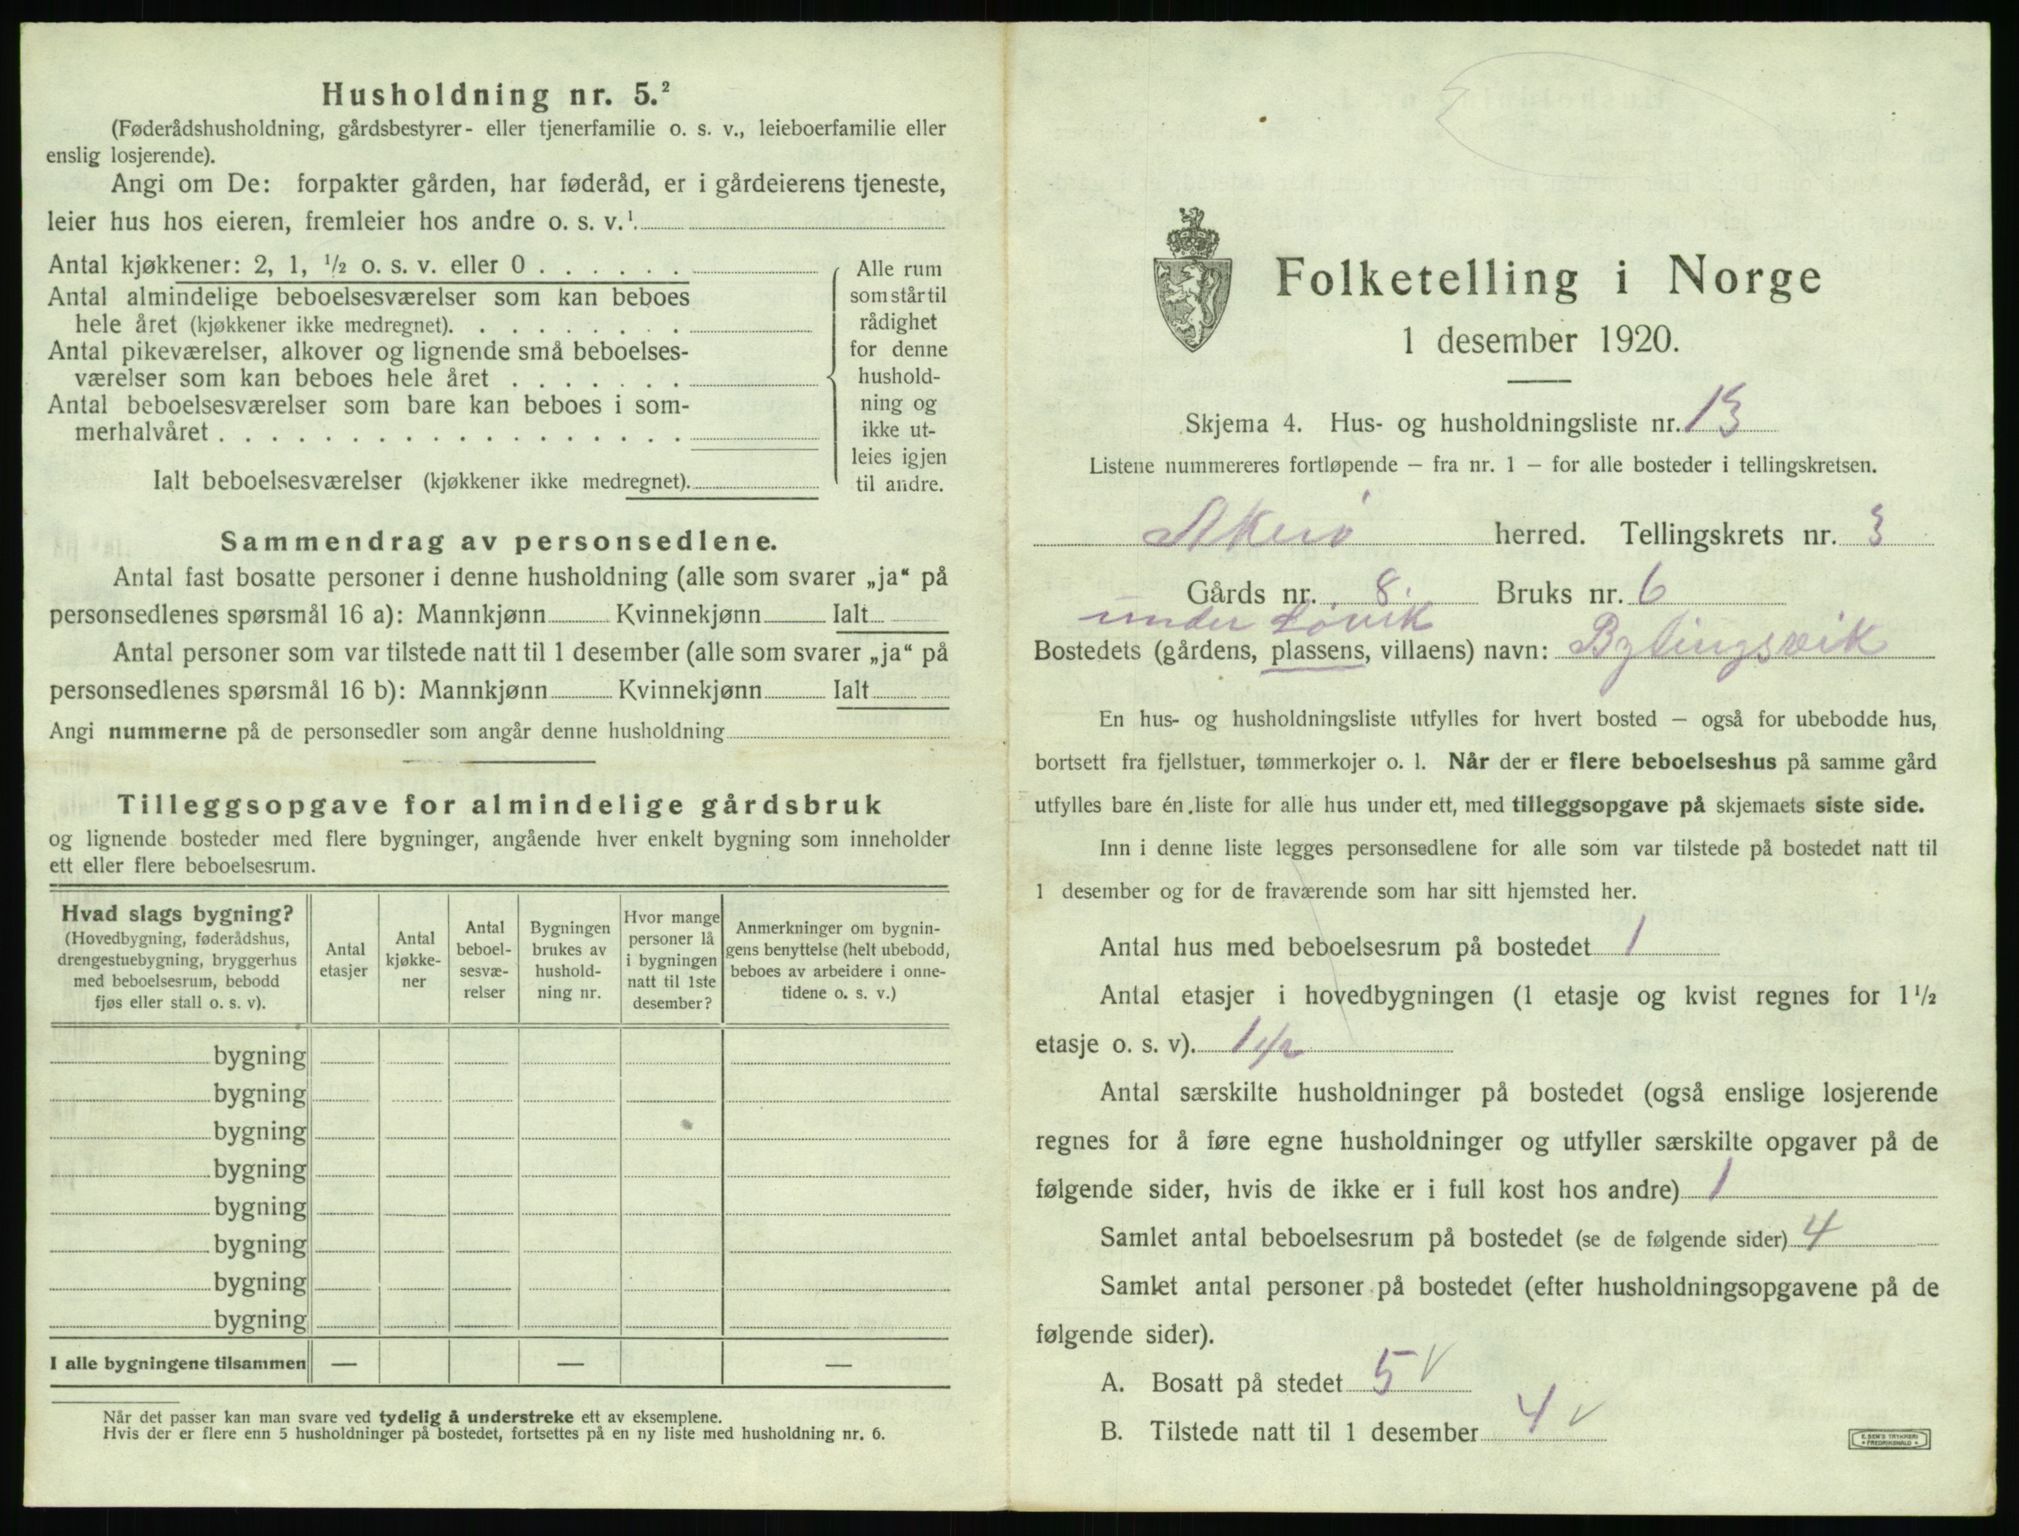 Husholdning nr. 5.²
(Føderådshusholdning, gårdsbestyrer- eller tjenerfamilie o. s. v., leieboerfamilie eller
enslig losjerende).
Angi om De: forpakter gården, har føderåd, er i gårdeierens tjeneste,
leier hus hos eieren, fremleier hos andre o. s. v.¹
Antal kjøkkener: 2, 1, ½ o. s. v. eller 0 . . . . . .
Antal almindelige beboelsesværelser som kan beboes
hele året (kjøkkener ikke medregnet). . . . . . . . .
Antal pikeværelser, alkover og lignende små beboelses-
værelser som kan beboes hele året . . . . . . .
Antal beboelsesværelser som bare kan beboes i som-
merhalvåret . . . . . . . . . . . . . . . . .
Ialt beboelsesværelser (kjøkkener ikke medregnet).
Alle rum
som står til
rådighet
for denne
hushold-
ning og
ikke ut-
leies igjen
til andre.
Sammendrag av personsedlene.
Antal fast bosatte personer i denne husholdning (alle som svarer „ja“ på
personsedlenes spørsmål 16 a): Mannkjønn Kvinnekjønn Ialt
Antal personer som var tilstede natt til 1 desember (alle som svarer „ja“ på
personsedlenes spørsmål 16 b): Mannkjønn Kvinnekjønn Ialt
Angi nummerne på de personsedler som angår denne husholdning
Tilleggsopgave for almindelige gårdsbruk
og lignende bosteder med flere bygninger, angående hver enkelt bygning som inneholder
ett eller flere beboelsesrum.
Hvad slags bygning?
(Hovedbygning, føderådshus,
drengestuebygning, bryggerhus
med beboelsesrum, bebodd
fjøs eller stall o. s. v).
Antal
etasjer
Antal
kjøkke-
ner
Antal
beboel-
sesvæ-
relser
Bygningen
brukes av
hushold-
ning nr.
Hvor mange
personer lå
i bygningen
natt til 1ste
desember?
Anmerkninger om bygnin-
gens benyttelse (helt ubebodd,
beboes av arbeidere i onne-
tidene o. s. v.)
bygning
bygning
bygning
bygning
bygning
bygning
bygning
bygning
I alle bygningene tilsammen — — —
Når det passer kan man svare ved tydelig å understreke ett av eksemplene.
Hvis der er flere enn 5 husholdninger på bostedet, fortsettes på en ny liste med husholdning nr. 6.
Folketelling i Norge
1 desember 1920.
Skjema 4. Hus- og husholdningsliste nr. 13
Listene nummereres fortløpende – fra nr. 1 – for alle bosteder i tellingskretsen.
Akerø herred. Tellingskrets nr. 3
Gårds nr. 8. Bruks nr. 6
under Løvik
Bostedets (gårdens, plassens, villaens) navn: Bylingsvik
En hus- og husholdningsliste utfylles for hvert bosted – også for ubebodde hus,
bortsett fra fjellstuer, tømmerkojer o. l. Når der er flere beboelseshus på samme gård
utfylles bare én liste for alle hus under ett, med tilleggsopgave på skjemaets siste side.
Inn i denne liste legges personsedlene for alle som var tilstede på bostedet natt til
1 desember og for de fraværende som har sitt hjemsted her.
Antal hus med beboelsesrum på bostedet 1
Antal etasjer i hovedbygningen (1 etasje og kvist regnes for 1½
etasje o. s. v). 1 1/2
Antal særskilte husholdninger på bostedet (også enslige losjerende
regnes for å føre egne husholdninger og utfyller særskilte opgaver på de
følgende sider, hvis de ikke er i full kost hos andre) 1
Samlet antal beboelsesrum på bostedet (se de følgende sider) 4
Samlet antal personer på bostedet (efter husholdningsopgavene på de
følgende sider).
A. Bosatt på stedet 5 V
B. Tilstede natt til 1 desember 4 V
E. SEM'S TRYKKERI
• FREDRIKSHALD •